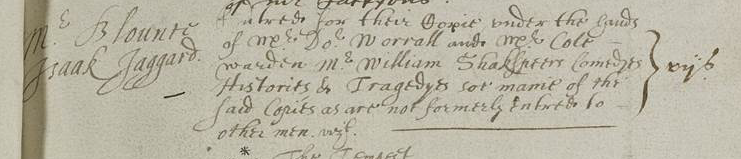 Mr Blounte
Isaak Jaggard.
Entred for their Copie vnder the hands
of Mr. Do. Worrall and Mr. Cole
warden Mr. William Shakspeers Comedyes
Histories & Tragedyes soe manie of the
said Copies as are not formerly entred to
other men. vizt.
vijs
* The Tempest